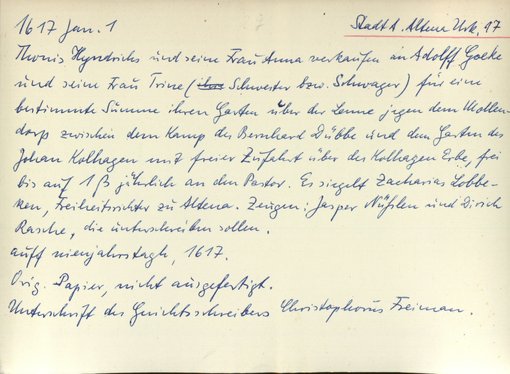 1617 Jan. 1 Stadt A. Altena Urk. 97
Thonis Hyndrichs und seine Frau Anna verkaufen an Adolff Goeke
und seine Frau Trine (ihre Schwester bzw. Schwager) für eine
bestimmte Summe ihren Garten über der Lenne jegen dem Mollen-
dorp zwischen dem Kamp des Bernhard Dübbe und dem Garten des
Johan Kolhagen mit freier Zufahrt über des Kolhagen Erbe, frei
bis auf 1 ß jährlich an den Pastor. Es siegelt Zacharias Lobbe-
ken, Freiheitsrichter zu Altena. Zeugen: Jasper Nüßlen und Dirich
Rasche, die unterschreiben sollen.
auff nienjahrstagh, 1617.
Orig. Papier, nicht ausgefertigt.
Unterschrift des Gerichtsschreibers Christophorus Freiman.